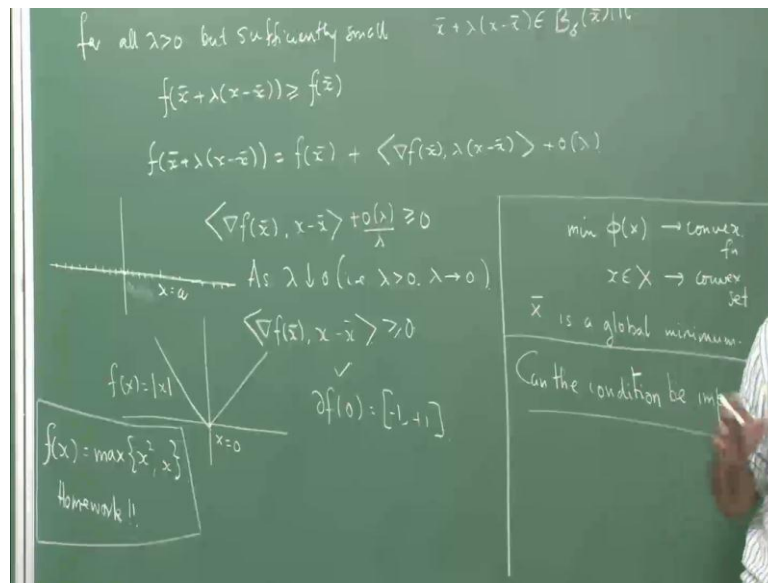 for all λ>0 but sufficiently small x̄+λ(x-x̄)∈ B_δ(x̄)
f(x̄+λ(x-x̄)) ≥ f(x̄)
f(x̄+λ(x-x̄)) = f(x̄) + ⟨∇f(x̄), λ(x-x̄)⟩ + o(λ)
⟨∇f(x̄), x-x̄⟩ + o(λ)/λ ≥ 0
x=a
As λ↓0 (i.e λ>0, λ→0)
⟨∇f(x̄), x-x̄⟩ ≥ 0
✓
f(x)=|x|
x=0
∂f(0) = [-1, +1]
f(x) = max{x², x}
Homework!!
min φ(x) → convex
fn
x∈X → convex
set
x̄ is a global minimum.
Can the condition be